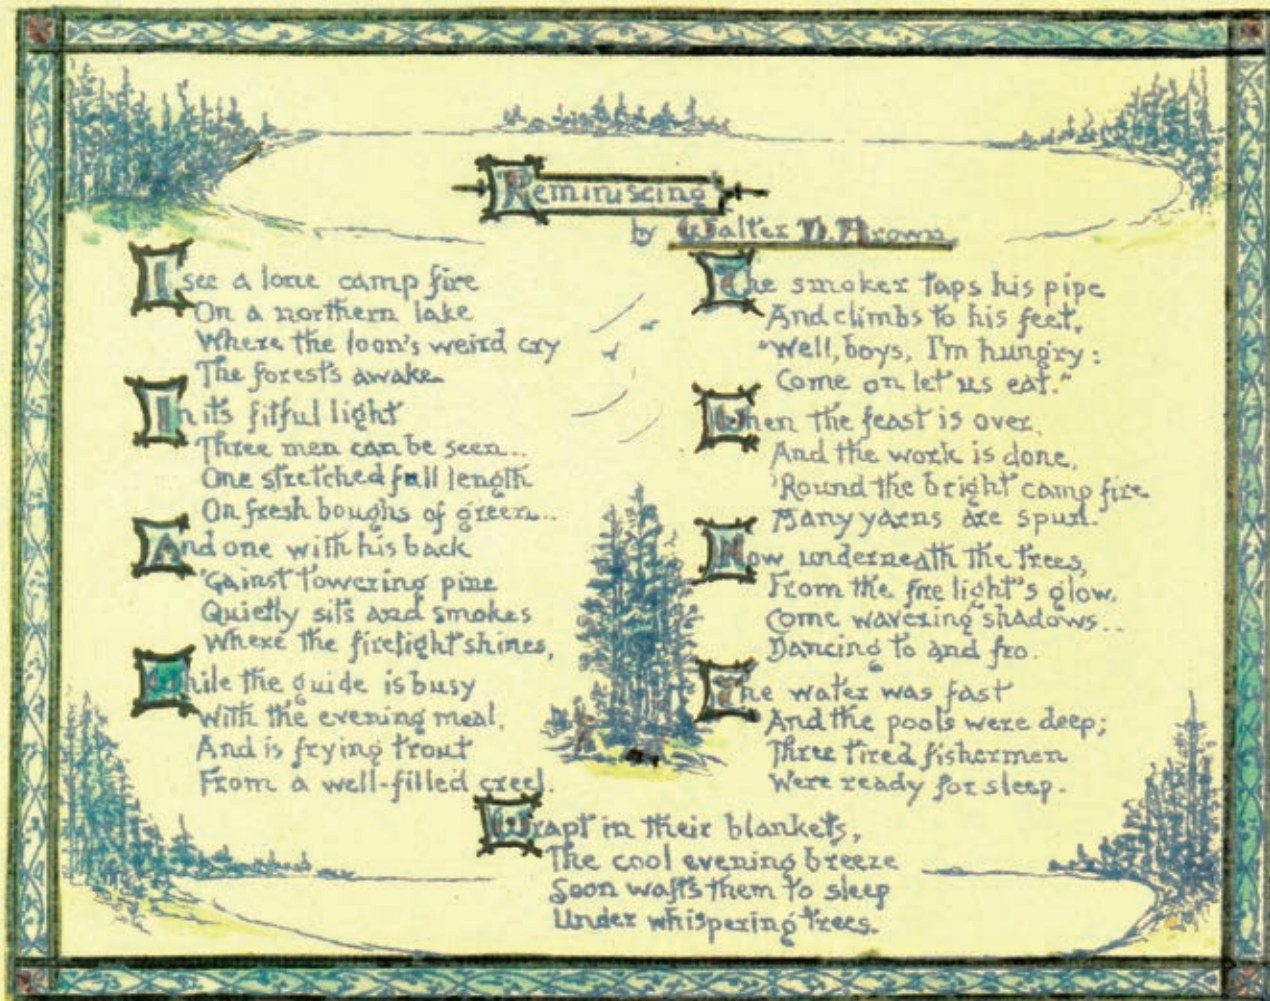 Reminiscing
by Walter D. Brown
I see a lone camp fire
On a northern lake
Where the loon's weird cry
The forest's awake.
In its fitful light
Three men can be seen...
One stretched full length
On fresh boughs of green...
And one with his back
'Gainst towering pine
Quietly sits and smokes
Where the firelight shines,
While the guide is busy
With the evening meal,
And is frying trout
From a well-filled creel.
The smoker taps his pipe
And climbs to his feet,
"Well, boys, I'm hungry:
Come on let us eat."
When the feast is over,
And the work is done,
'Round the bright camp fire
Many yarns are spun.
Now underneath the trees,
From the fire light's glow,
Come wavering shadows...
Dancing to and fro.
The water was fast
And the pools were deep;
Three tired fishermen
Were ready for sleep.
Wrapt in their blankets,
The cool evening breeze
Soon wafts them to sleep
Under whispering trees.